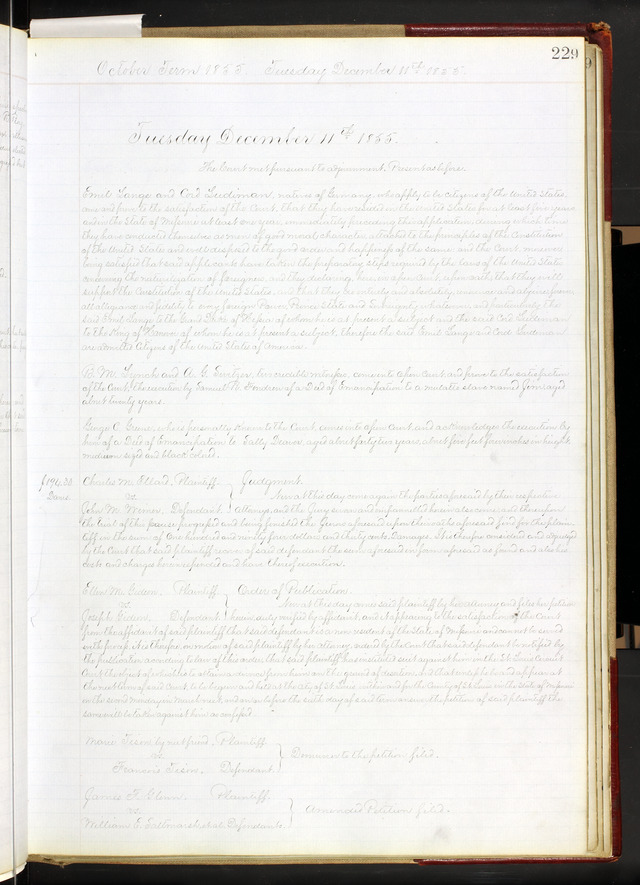 229
October Term 1855. Tuesday December 11th 1855.
Tuesday December 11th 1855.
The Court met pursuant to adjournment, Present as before.
Emil Lange and Cord natives of Germany, who apply to be citizens of the United States,
and prove to the satisfaction of the Court, that they have resided in the United States for at least five years
and in the State of Missouri at least one year, immediately preceding this application, during which time
they have conducted themselves as men of good moral character, attached to the principles of the Constitution
of the United States and well disposed to the good order and happiness of the same: and the Court moreover
being satisfied that said applicants have taken the preparatory steps required by the laws of the United States
concerning the naturalization of foreigners, and they declaring, here in open Court, upon oath, that they will
support the Constitution of the United States, and that they do absolutely and entirely renounce and abjure forever
all allegiance and fidelity to every foreign Prince, Power, State and Sovereignty whatsoever, and particularly the
said Emil Lange to the Duke of of whom he is at present a subject and the said Cord
to the King of Hanover of whom he is at present a subject. therefore the said Emil Lange and Cord
are admitted Citizens of the United States of America.
M. French and A. two credible witnesses, come into open Court and prove to the satisfaction
of the Court, the execution by Samuel of a Deed of Emancipation to a slave named aged
about twenty years.
George C. who is personally known to the Court, comes into open Court and acknowledges the execution by
him of a Deed of Emancipation to Sally aged about forty two years, about five feet inches in height
medium sized and black colored.
Charles M. Plaintiff Judgment.
vs. Now at this day come again the parties aforesaid by their respective
John M. Defendant Attorneys, and the Jury sworn and empannelled herein also come and thereupon
the trial of this cause progressed and being finished the Jurors aforesaid upon their oaths aforesaid find for the plain
tiff in the sum of One hundred and ninety four dollars and thirty cents damages. It is therefore considered and adjudged
by the Court that said plaintiff recover of said defendant the sum aforesaid in form aforesaid as found and also his
costs and charges herein expended and have thereof execution.
Ellen M. Plaintiff Order of Publication
vs. Now at this day comes said plaintiff by her attorney and files her petition
Joseph Defendant herein, duly verified by affidavit, and it appearing to the satisfaction of the Court
from the affidavit of said plaintiff that said defendant is a non resident of the State of Missouri and cannot be served
with process. It is therefore, on motion of said plaintiff by her attorney, ordered by the Court that said defendant be notified by
the publication according to law of this order, that said plaintiff has instituted suit against him in the St. Louis Circuit
Court the object of which is to obtain a divorce from him on the ground of desertion, and that unless he be and appear at
the next term of said Court to be begun and held at the City of St. Louis within and for the County of St. Louis in the State of Missouri
on the second Monday in March next, and on or before the sixth day of said term answer the petition of said plaintiff the
same will be taken against him as confessed.
Marie by next friend, Plaintiff
vs. Demurrer to the petition filed.
Francois Defendant
James F. Plaintiff.
vs. Amended Petition filed.
William E. et al. Defendants.